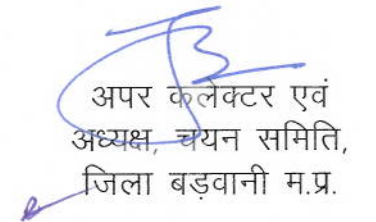 अपर कलेक्टर एवं
अध्यक्ष, चयन समिति,
जिला बड़वानी म.प्र.